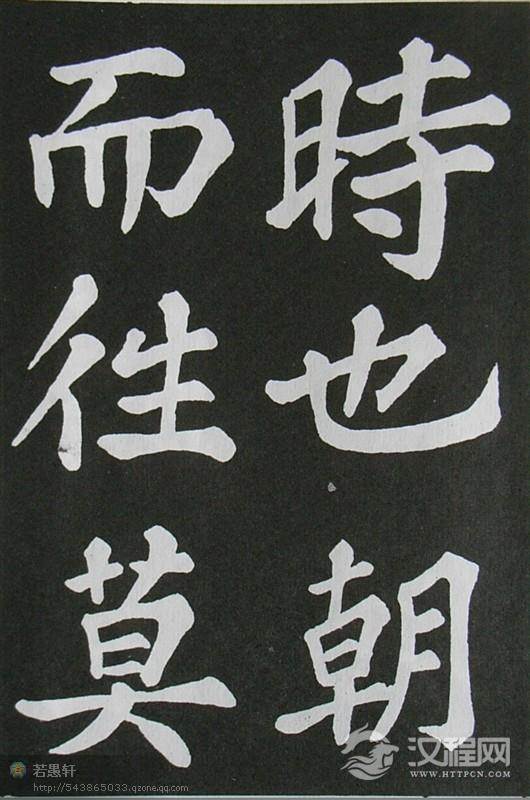 時也朝
而往莫
若愚轩
http://543865033.qzone.qq.com
汉程网
WWW.HTTPCN.COM